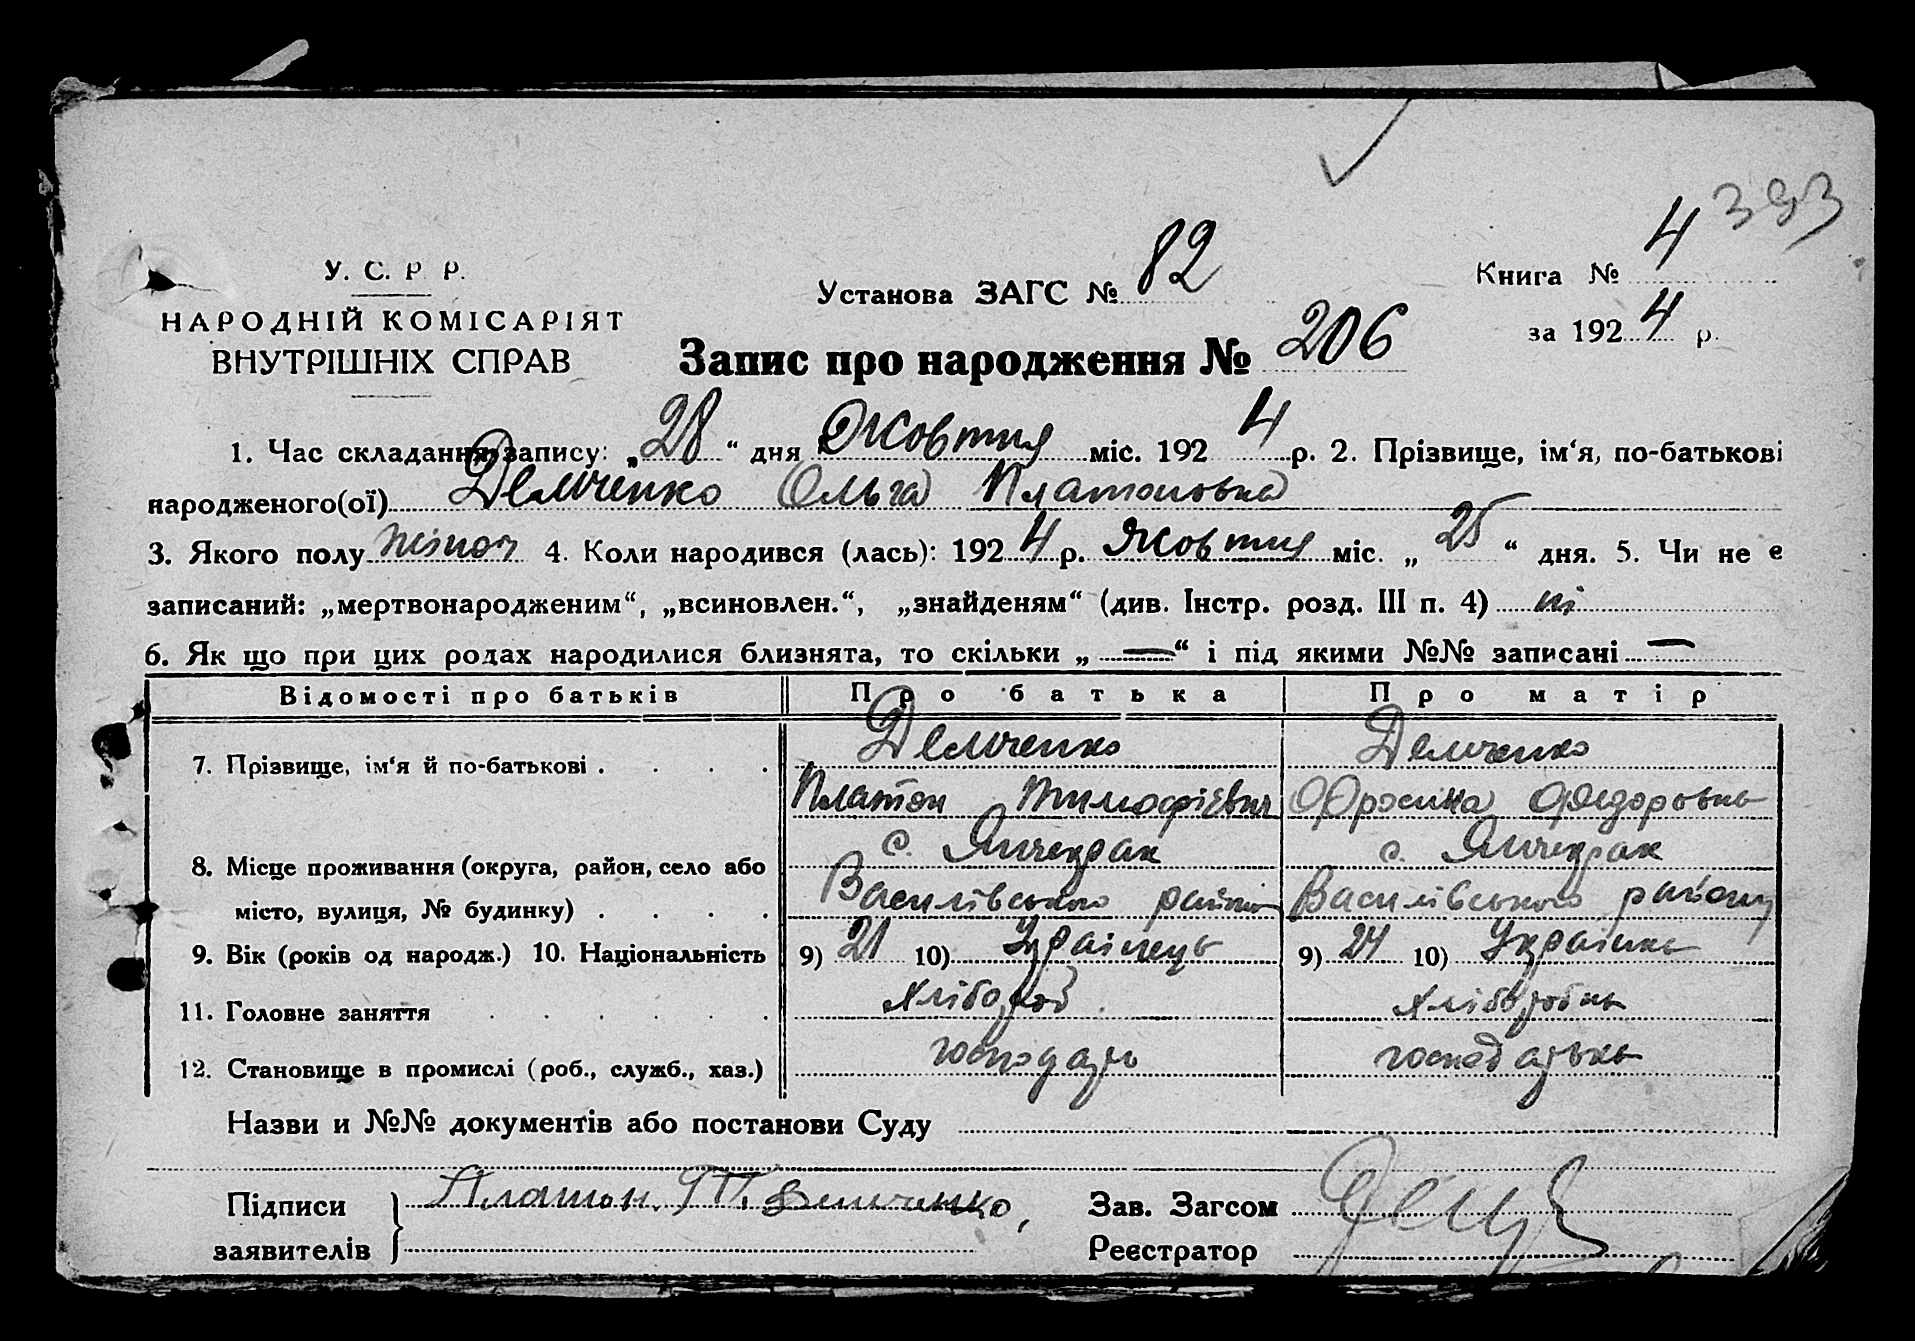 4 393
У. С. Р Р.
Установа ЗАГС № 82
Книга №
НАРОДНІЙ КОМІСАРІЯТ
за 1924 р.
ВНУТРІШНІХ СПРАВ
Запис про народження № 206
1. Час складання запису: „28“ дня Жовтня міс. 1924 р. 2. Прізвище, ім‘я, по-батькові
народженого(ої) Демченко Ольга Платоновна
3. Якого полу жіноч 4. Коли народився (лась): 1924 р. Жовтня міс. „25“ дня. 5. Чи не є
записаний: „мертвонародженим“, „всиновлен.“, „знайденям“ (див. Інстр. розд. III п. 4) ні
6. Як що при цих родах народилися близнята, то скільки „—“ і під якими №№ записані —
Відомості про батьків Про батька Про матір
Демченко Демченко
7. Прізвище, ім‘я й по-батькові
Платон Тимофієвич Фросина Федоровна
с. Янчекрак с. Янчекрак
8. Місце проживання (округа, район, село або
місто, вулиця, № будинку)
Василівського району Василівського району
9. Вік (років од народж.) 10. Національність 9) 21 10) Українець 9) 24 10) Українка
11. Головне заняття Хлібороб Хліборобка
12. Становище в промислі (роб., служб., хаз.) господарь господарька
Назви и №№ документів або постанови Суду
Підписи Платон Т Демченко, Зав. Загсом
заявителів Реєстратор